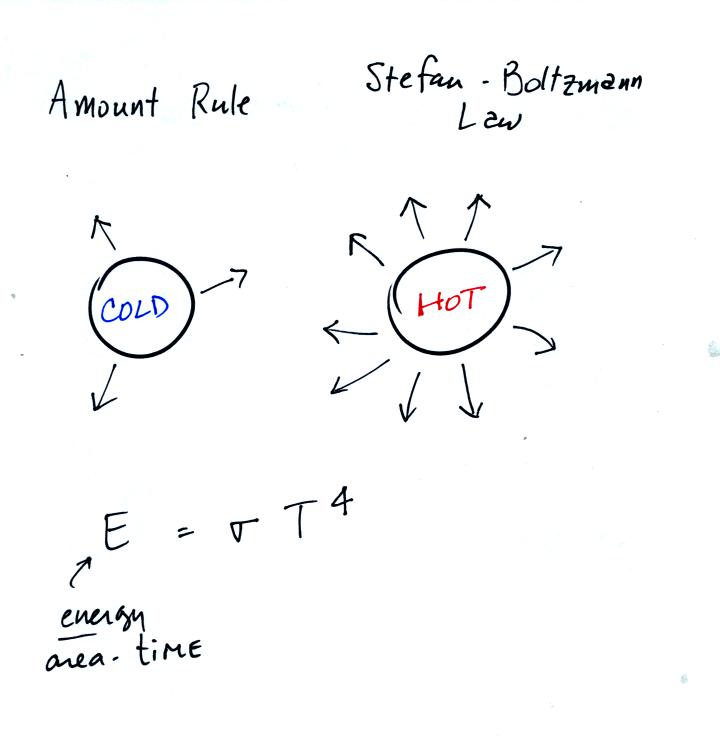 Amount Rule
Stefan - Boltzmann
Law
COLD
HOT
E = σ T⁴
energy
area · time